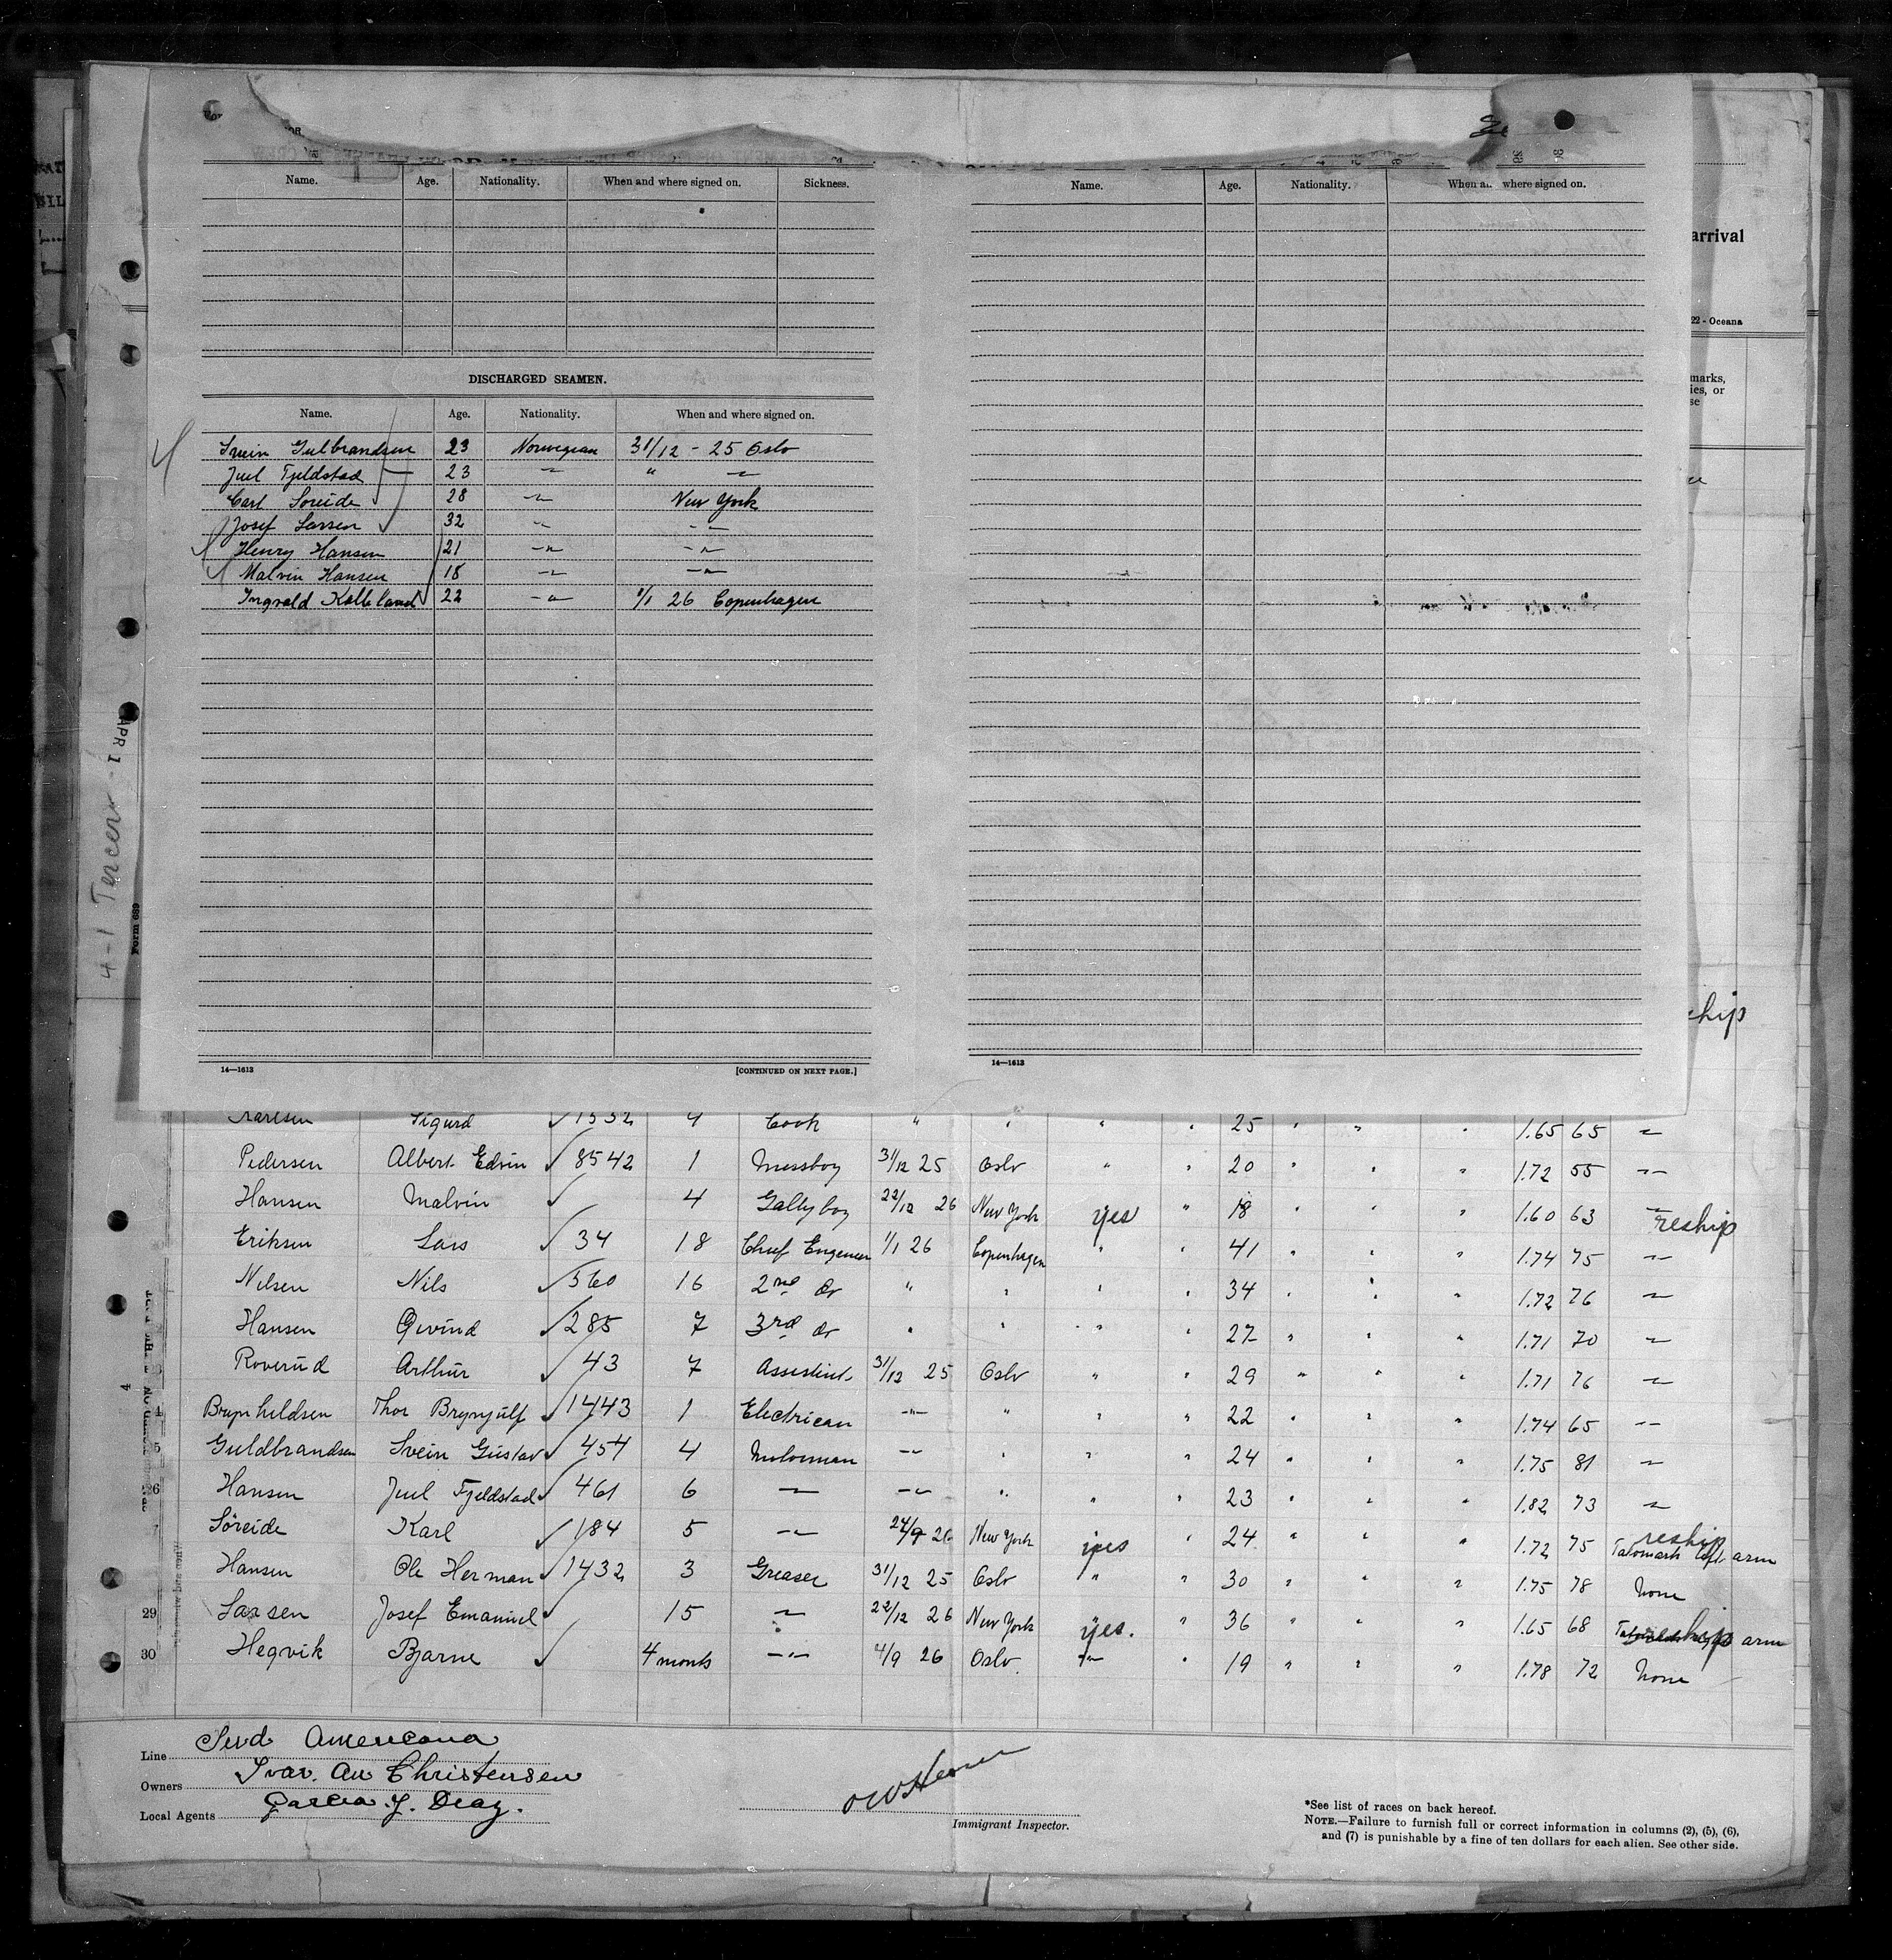 Name. Age. Nationality. When and where signed on. Sickness.
DISCHARGED SEAMEN.
Name. Age. Nationality. When and where signed on.
Svein Gulbrandsen 23 Norwegian 31/12 - 25 Oslo
Juel Fjeldstad 23 -"- " -"-
Carl Soreide 28 -"- New York
Josef Larsen 32 -"- -"-
Henry Hansen 21 -"- -"-
Malvin Hansen 18 -"- -"-
Ingvald Kalleland 22 -"- 1/1 26 Copenhagen
14—1613 [CONTINUED ON NEXT PAGE.]
Name. Age. Nationality. When and where signed on.
14—1613
arrival
22 - Oceana
marks,
ies, or
se
ship
APR 1
4-1 Tercero
Form 689
Karlsen Sigurd 1532 4 Cook " " " " 25 " " " 1.65 65 -"-
Pedersen Albert Edvin 8542 1 Messboy 31/12 25 Oslo " " 20 " " " 1.72 55 -"-
Hansen Malvin 4 Galleyboy 22/12 26 New York yes " 18 " " " 1.60 63 -"- reship
Eriksen Lars 34 18 Chief Engeneer 1/1 26 Copenhagen " " 41 " " " 1.74 75 -"-
Nilsen Nils 560 16 2nd Do " " " " 34 " " " 1.72 76 -"-
Hansen Øivind 285 7 3rd Do " " " " 27 " " " 1.71 70 -"-
Roverud Arthur 43 7 Assistent 31/12 25 Oslo " " 29 " " " 1.71 76 -"-
Brynhildsen Thor Brynjulf 1443 1 Electrican -"- " " " 22 " " " 1.74 65 -"-
5 Guldbrandsen Svein Gustav 454 4 Motorman -"- " " " 24 " " " 1.75 81 -"-
26 Hansen Juel Fjeldstad 461 6 -"- -"- " " " 23 " " " 1.82 73 -"-
7 Söreide Karl 184 5 -"- 24/9 26 New York yes " 24 " " " 1.72 75 reship Tatomark left arm
Hansen Ole Herman 1432 3 Greaser 31/12 25 Oslo " " 30 " " " 1.75 78 None
29 Larsen Josef Emanuel 15 -"- 22/12 26 New York yes. " 36 " " " 1.65 68 reship arm
30 Hegvik Bjarne 4 monts -"- 4/9 26 Oslo " " 19 " " " 1.78 72 None
Line Sud Americana
Owners Ivar. An Christensen
Local Agents Garcia y. Diaz.
Immigrant Inspector.
*See list of races on back hereof.
NOTE.—Failure to furnish full or correct information in columns (2), (5), (6),
and (7) is punishable by a fine of ten dollars for each alien. See other side.